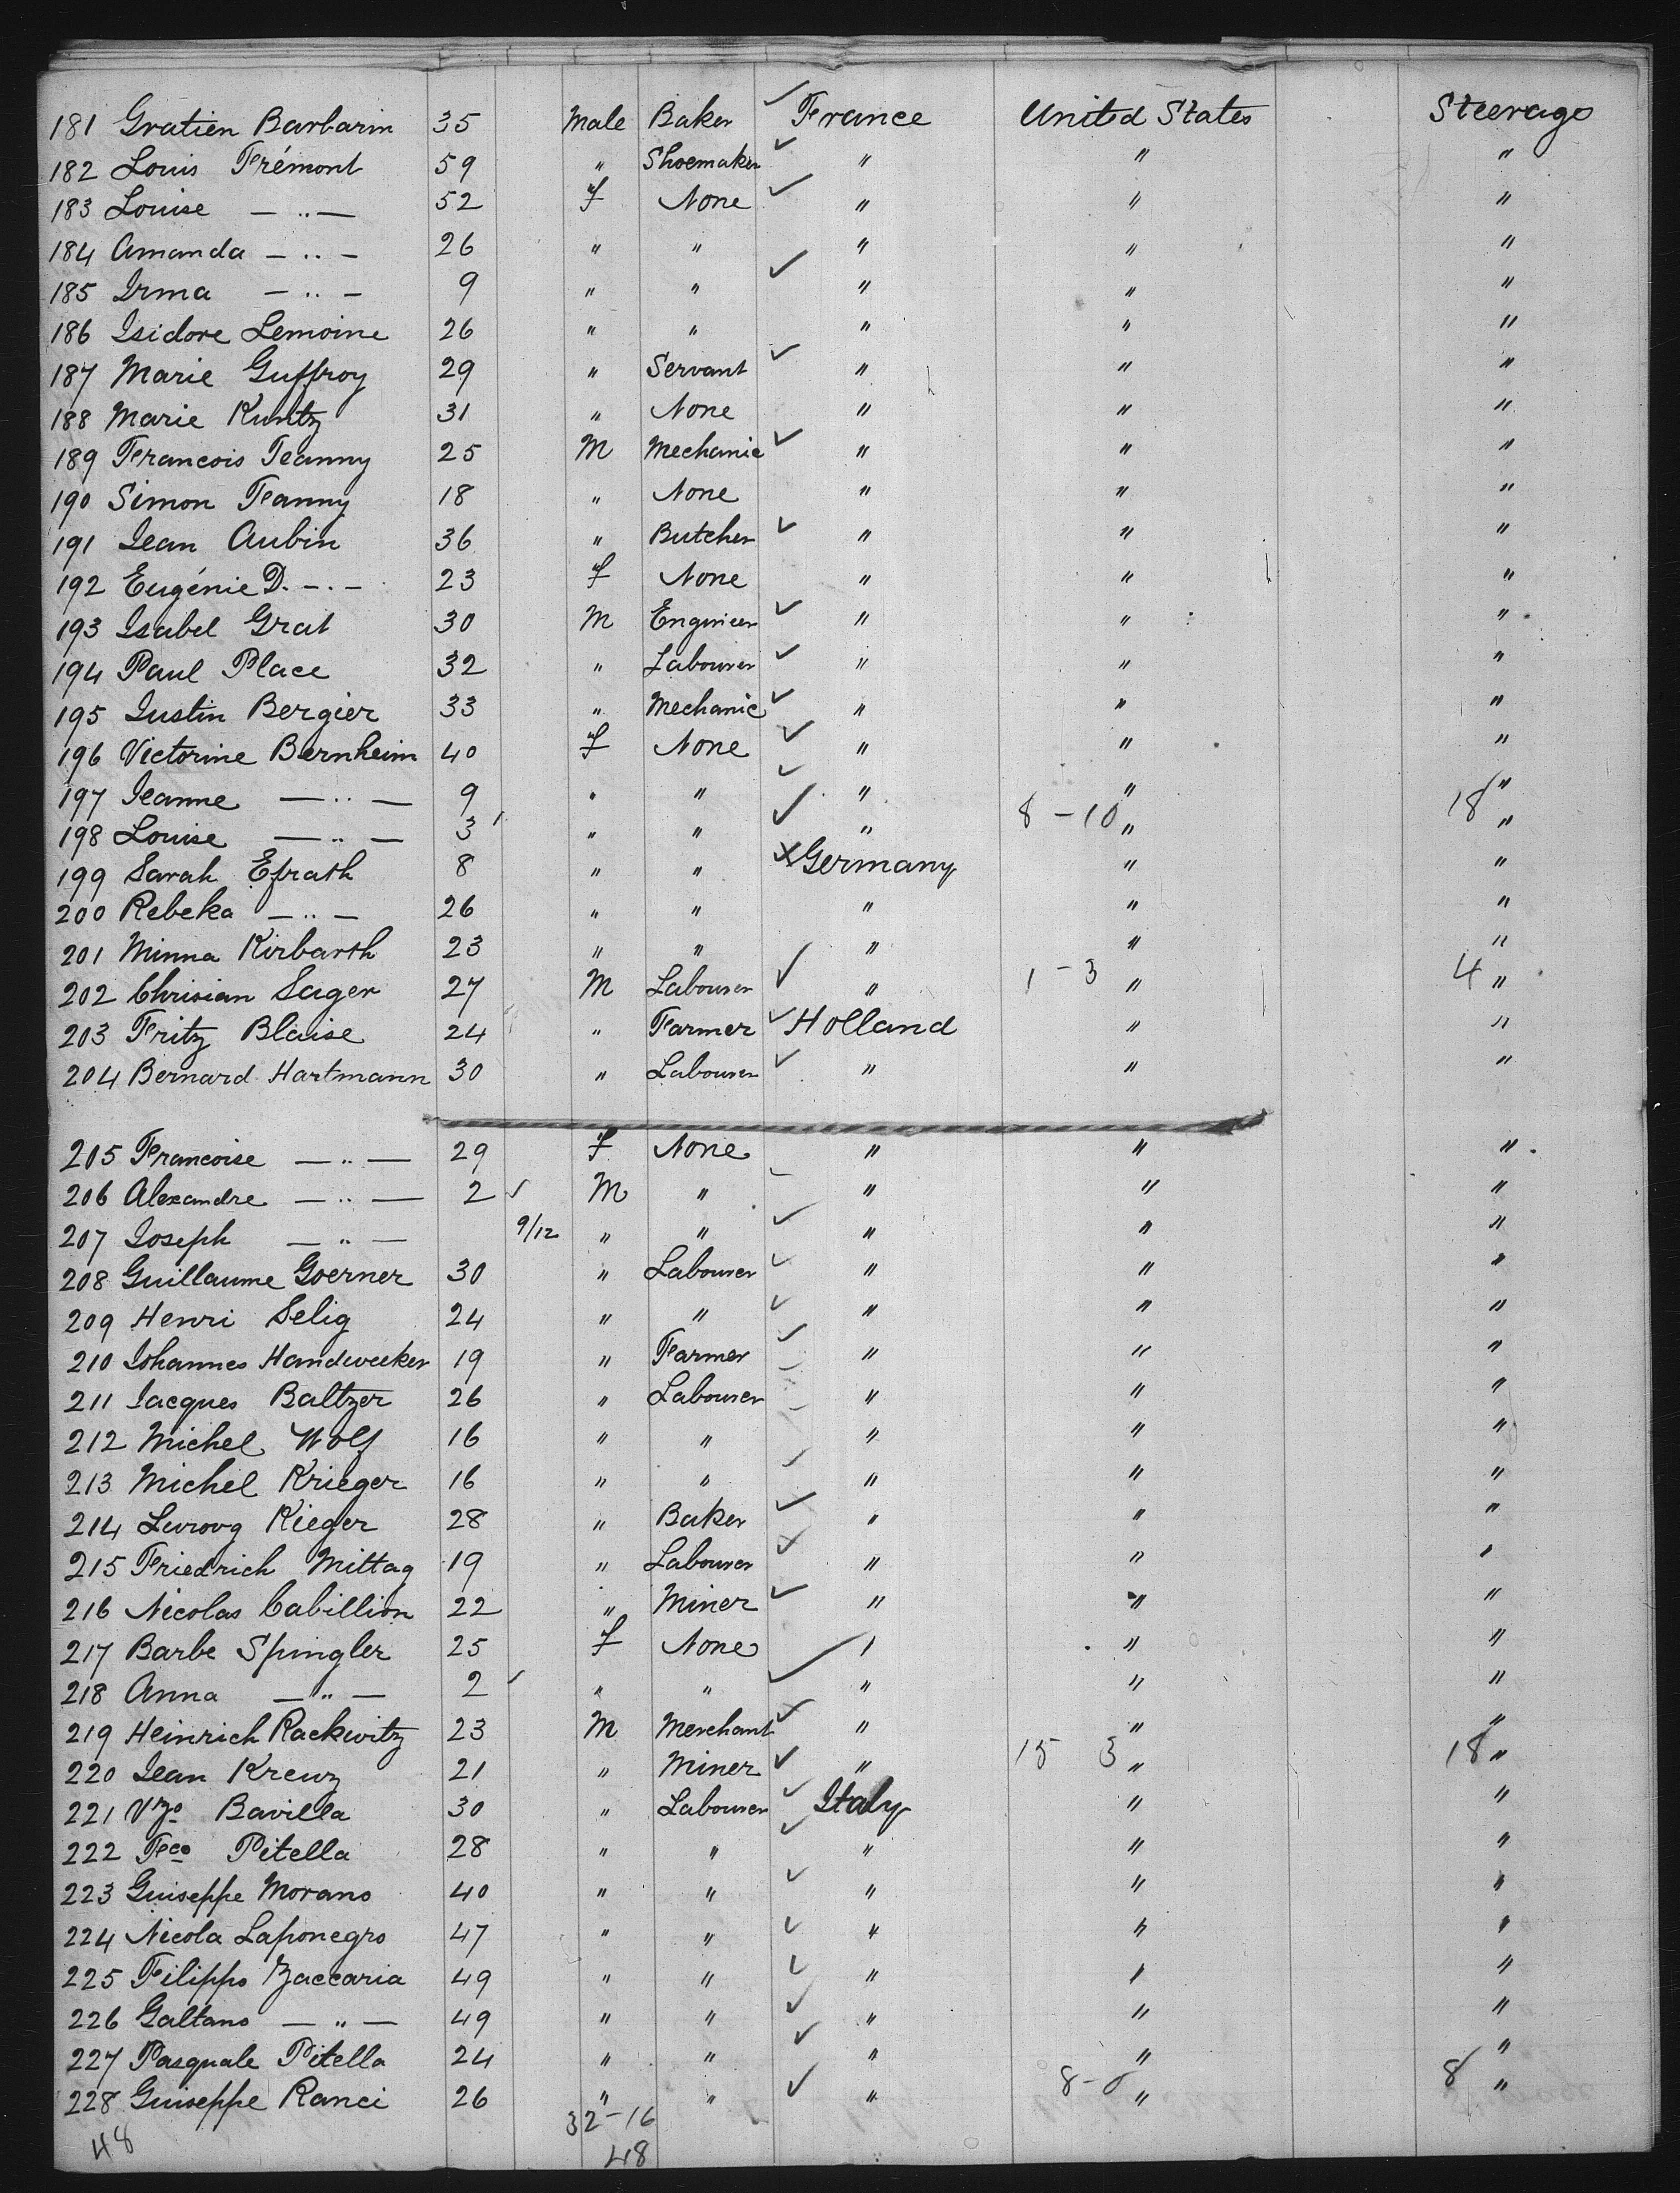 181 Gratien Barbarin 35 Male Baker ✓ France United States Steerage
182 Louis Frémont 59 " Shoemaker ✓ " " "
183 Louise — " — 52 f None ✓ " " "
184 Amanda — " — 26 " " " " "
185 Irma — " — 9 " " ✓ " " "
186 Isidore Lemoine 26 " " " " "
187 Marie Guffroy 29 " Servant ✓ " " "
188 Marie Kuntz 31 " None " " "
189 Francois Jeanny 25 M Mechanic ✓ " " "
190 Simon Feanny 18 " None " " "
191 Jean Aubin 36 " Butcher ✓ " " "
192 Eugénie D. — " — 23 f None " " "
193 Isabel Grat 30 M Engineer ✓ " " "
194 Paul Place 32 " Labourer ✓ " " "
195 Justin Bergier 33 " Mechanic ✓ " " "
196 Victorine Bernheim 40 f None ✓ " " "
197 Jeanne — " — 9 " " ✓ " " "
198 Louise — " — 3 " " ✓ " 8-10 " 18 "
199 Sarah Efrath 8 " " Germany " "
200 Rebeka — " — 26 " " " " "
201 Minna Kirbarth 23 " " " " "
202 Chrisian Sager 27 M Labourer ✓ " 1-3 " 4 "
203 Fritz Blaise 24 " Farmer ✓ Holland " "
204 Bernard Hartmann 30 " Labourer ✓ " " "
205 Francoise — " — 29 f None " " "
206 Alexandre — " — 2 ✓ M " " " "
207 Joseph — " — 9/12 " " ✓ " " "
208 Guillaume Goerner 30 " Labourer ✓ " " "
209 Henri Selig 24 " " ✓ " " "
210 Johannes Handwecker 19 " Farmer ✓ " " "
211 Jacques Baltzer 26 " Labourer " " "
212 Michel Wolf 16 " " " " "
213 Michel Krieger 16 " " ✓ " " "
214 Kieger 28 " Baker ✓ " " "
215 Friedrich Mittag 19 " Labourer " " "
216 Nicolas Cabillion 22 " Miner ✓ " " "
217 Barbe Spingler 25 f None " " "
218 Anna — " — 2 ✓ " " ✓ " " "
219 Heinrich Rackwitz 23 M Merchant ✓ " " "
220 Jean Kreuz 21 " Miner ✓ " 15 3 " 18 "
221 Vzo Bavilla 30 " Labourer ✓ Italy " "
222 Fco Pitella 28 " " ✓ " " "
223 Guiseppe Morano 40 " " ✓ " " "
224 Nicola Laponegro 47 " " ✓ " " "
225 Filippo Zaccaria 49 " " ✓ " " "
226 Galtano — " — 49 " " ✓ " " "
227 Pasquale Pitella 24 " " ✓ " " "
228 Guiseppe Ranci 26 " " ✓ " 8-0 " 8 "
32-16
48 48